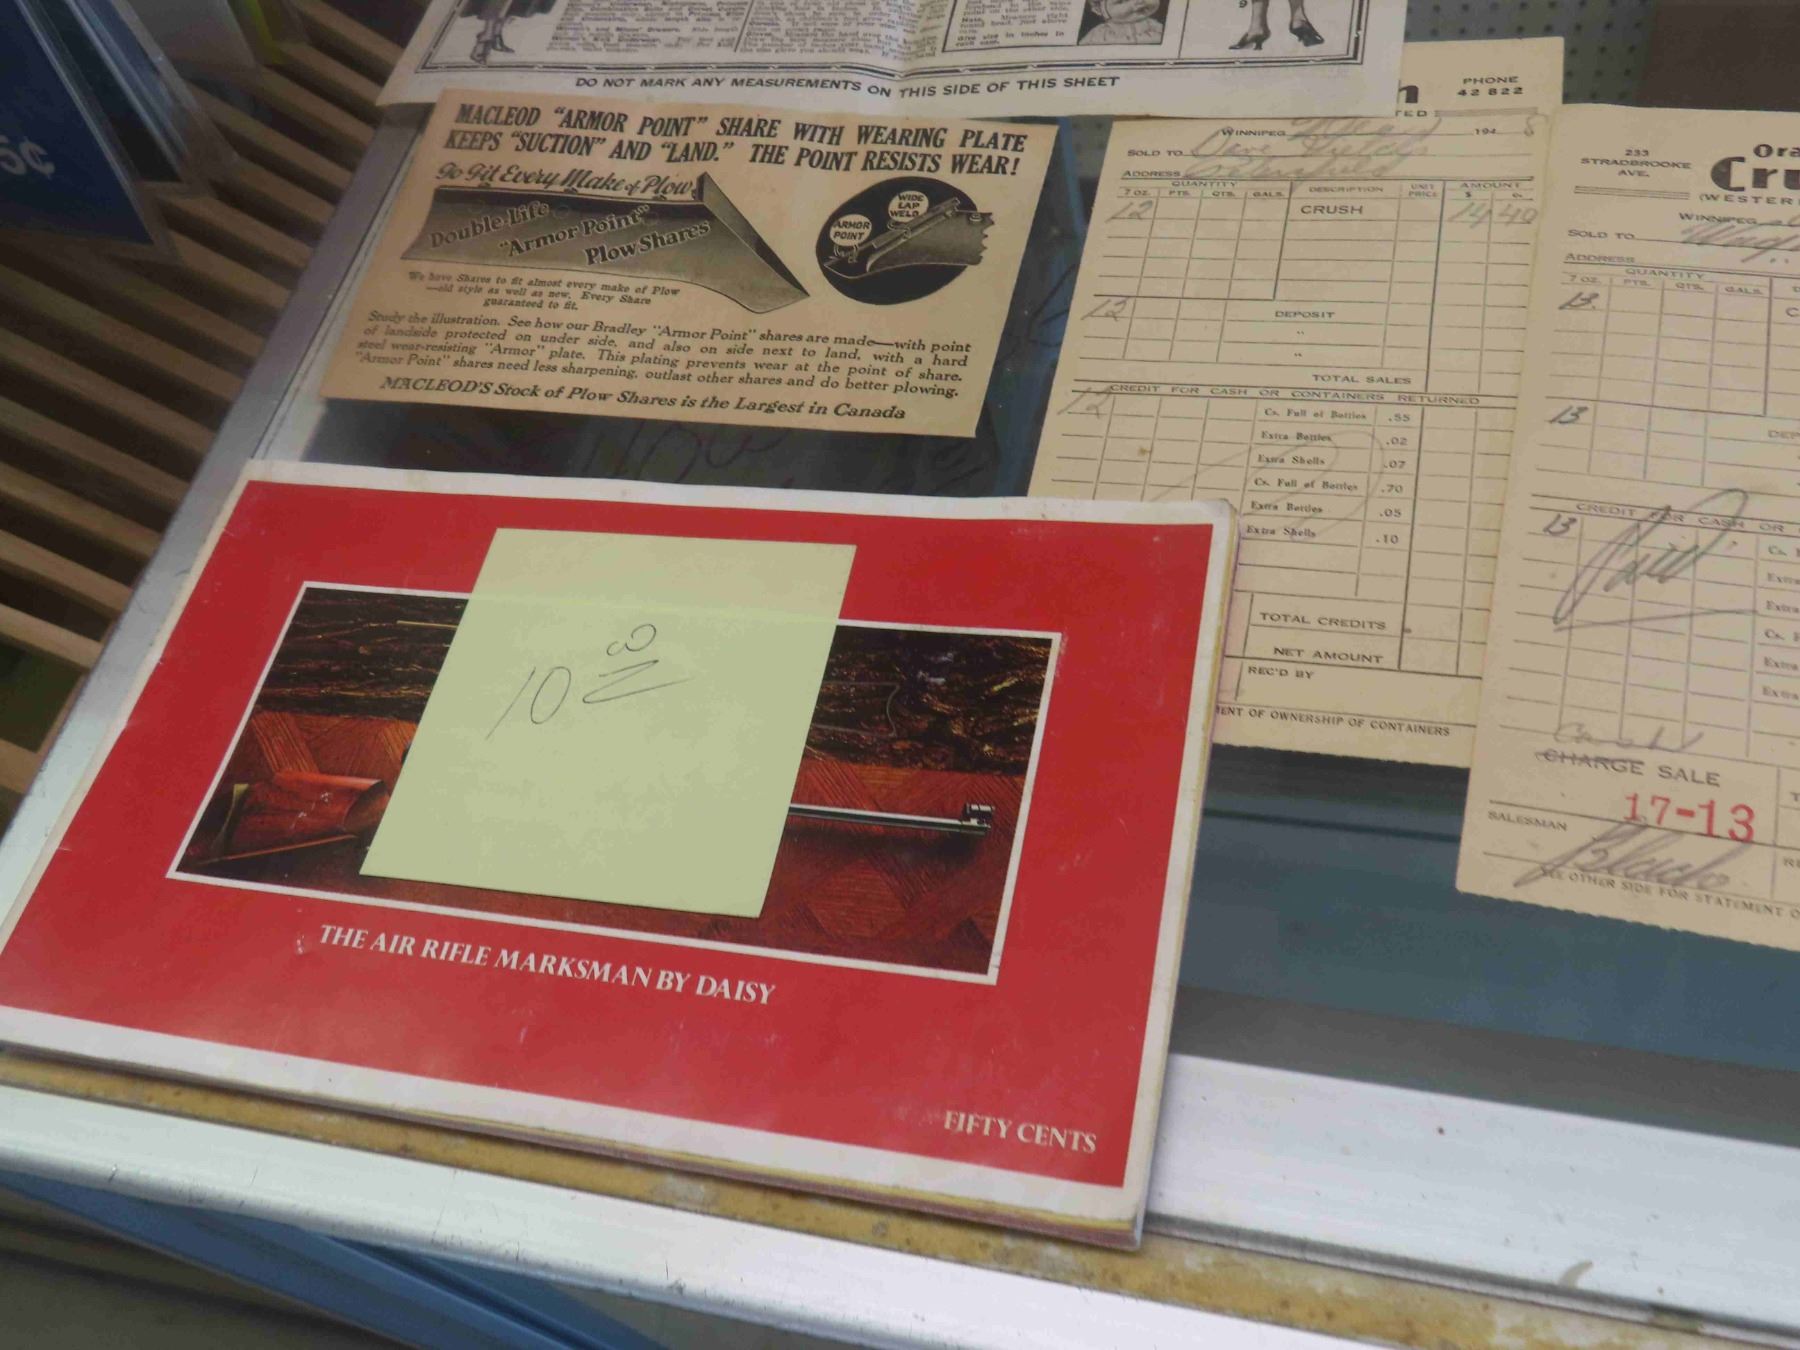 DO NOT MARK ANY MEASUREMENTS ON THIS SIDE OF THIS SHEET
5¢
MACLEOD "ARMOR POINT" SHARE WITH WEARING PLATE
KEEPS "SUCTION" AND "LAND." THE POINT RESISTS WEAR!
To Fit Every Make of Plow
Double-Life
"Armor Point"
Plow Shares
WIDE
LAP
WELD
ARMOR
POINT
We have Shares to fit almost every make of Plow
—old style as well as new. Every Share
guaranteed to fit.
Study the illustration. See how our Bradley "Armor Point" shares are made—with point
of landside protected on under side, and also on side next to land, with a hard
steel wear-resisting "Armor" plate. This plating prevents wear at the point of share.
"Armor Point" shares need less sharpening, outlast other shares and do better plowing.
MACLEOD'S Stock of Plow Shares is the Largest in Canada
10 00
THE AIR RIFLE MARKSMAN BY DAISY
FIFTY CENTS
PHONE
42 822
WINNIPEG 194 8
SOLD TO Dave
ADDRESS
QUANTITY DESCRIPTION UNIT PRICE AMOUNT
7 OZ. PTS. QTS. GALS. $ c.
12 CRUSH 14 40
12 DEPOSIT
"
"
TOTAL SALES
CREDIT FOR CASH OR CONTAINERS RETURNED
12 Cs. Full of Bottles .55
Extra Bottles .02
Extra Shells .07
Cs. Full of Bottles .70
Extra Bottles .05
Extra Shells .10
TOTAL CREDITS
NET AMOUNT
REC'D BY
ENT OF OWNERSHIP OF CONTAINERS
233
STRADBROOKE
AVE.
Ora
Cru
(WESTER
WINNIPEG
SOLD TO
ADDRESS
QUANTITY
7 OZ. PTS. QTS. GALS.
13 C
13 DEP
CREDIT FOR CASH OR
13 Cs. F
Paid Extra
Extra
Cs. F
Extra
Extra
Cash
CHARGE SALE
17-13
SALESMAN
SEE OTHER SIDE FOR STATEMENT O